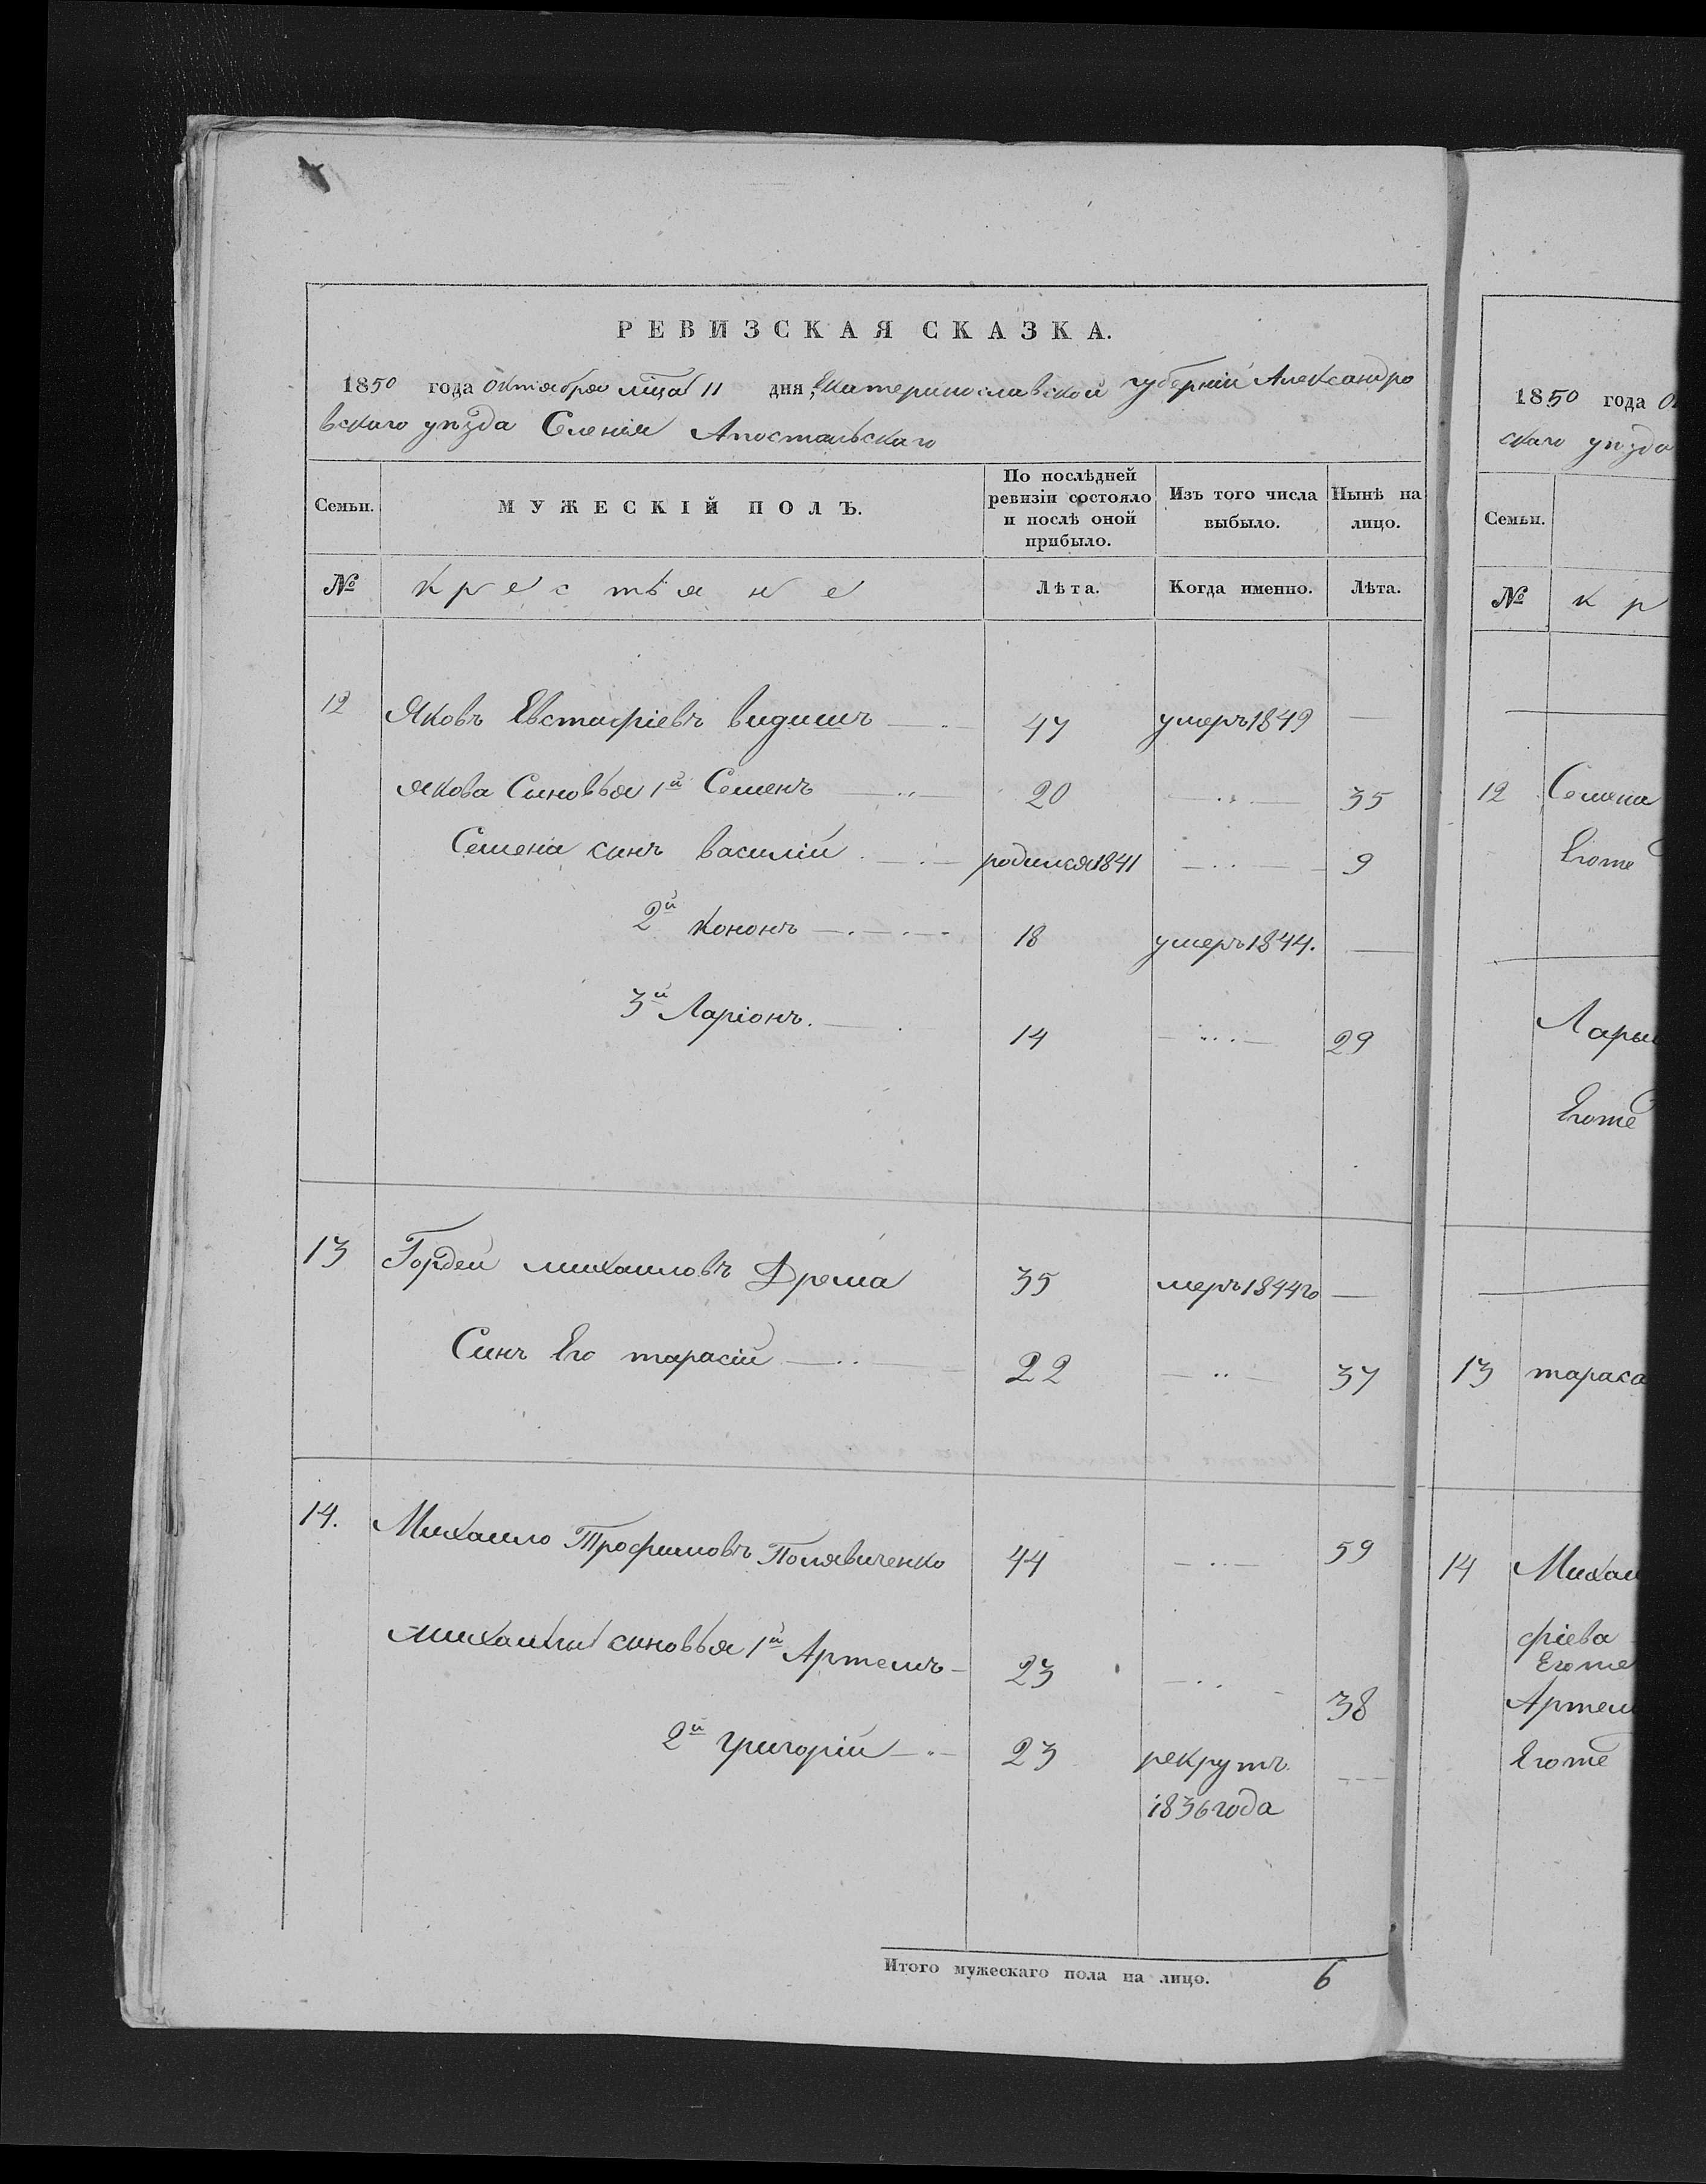 РЕВИЗСКАЯ СКАЗКА.
1850 года октября мѣца 11 дня, Екатеринославской губерніи Александро
вскаго уѣзда Селенія Апостальскаго
Семьи. МУЖЕСКІЙ ПОЛЪ. По послѣдней ревизіи состояло и послѣ оной прибыло. Изъ того числа выбыло. Нынѣ на лицо.
№ крестьяне Лѣта. Когда именно. Лѣта.
12 Яковъ Евстафіевъ 47 умеръ 1849 —
Якова Сыновья 1й Семенъ 20 — 35
Семена синъ василій родился 1841 — 9
2й Кононъ 18 умеръ 1844. —
3й Ларіонъ. 14 — 29
13 Гордей михаиловъ Дрема 35 меръ 1844го —
Синъ Его тарасій 22 — 37
14. Михаило Трофимовъ 44 — 59
синовья 1й Артемъ 23 — 38
2й Григорій 23 рекрутъ —
1836 года
Итого мужескаго пола на лицо. 6
1850 года
скаго уѣзда
Семьи.
№ к р
12 Семена
Его
Лари
Его
13 тараса
14 Михаи
фіева
Его
Артем
Его